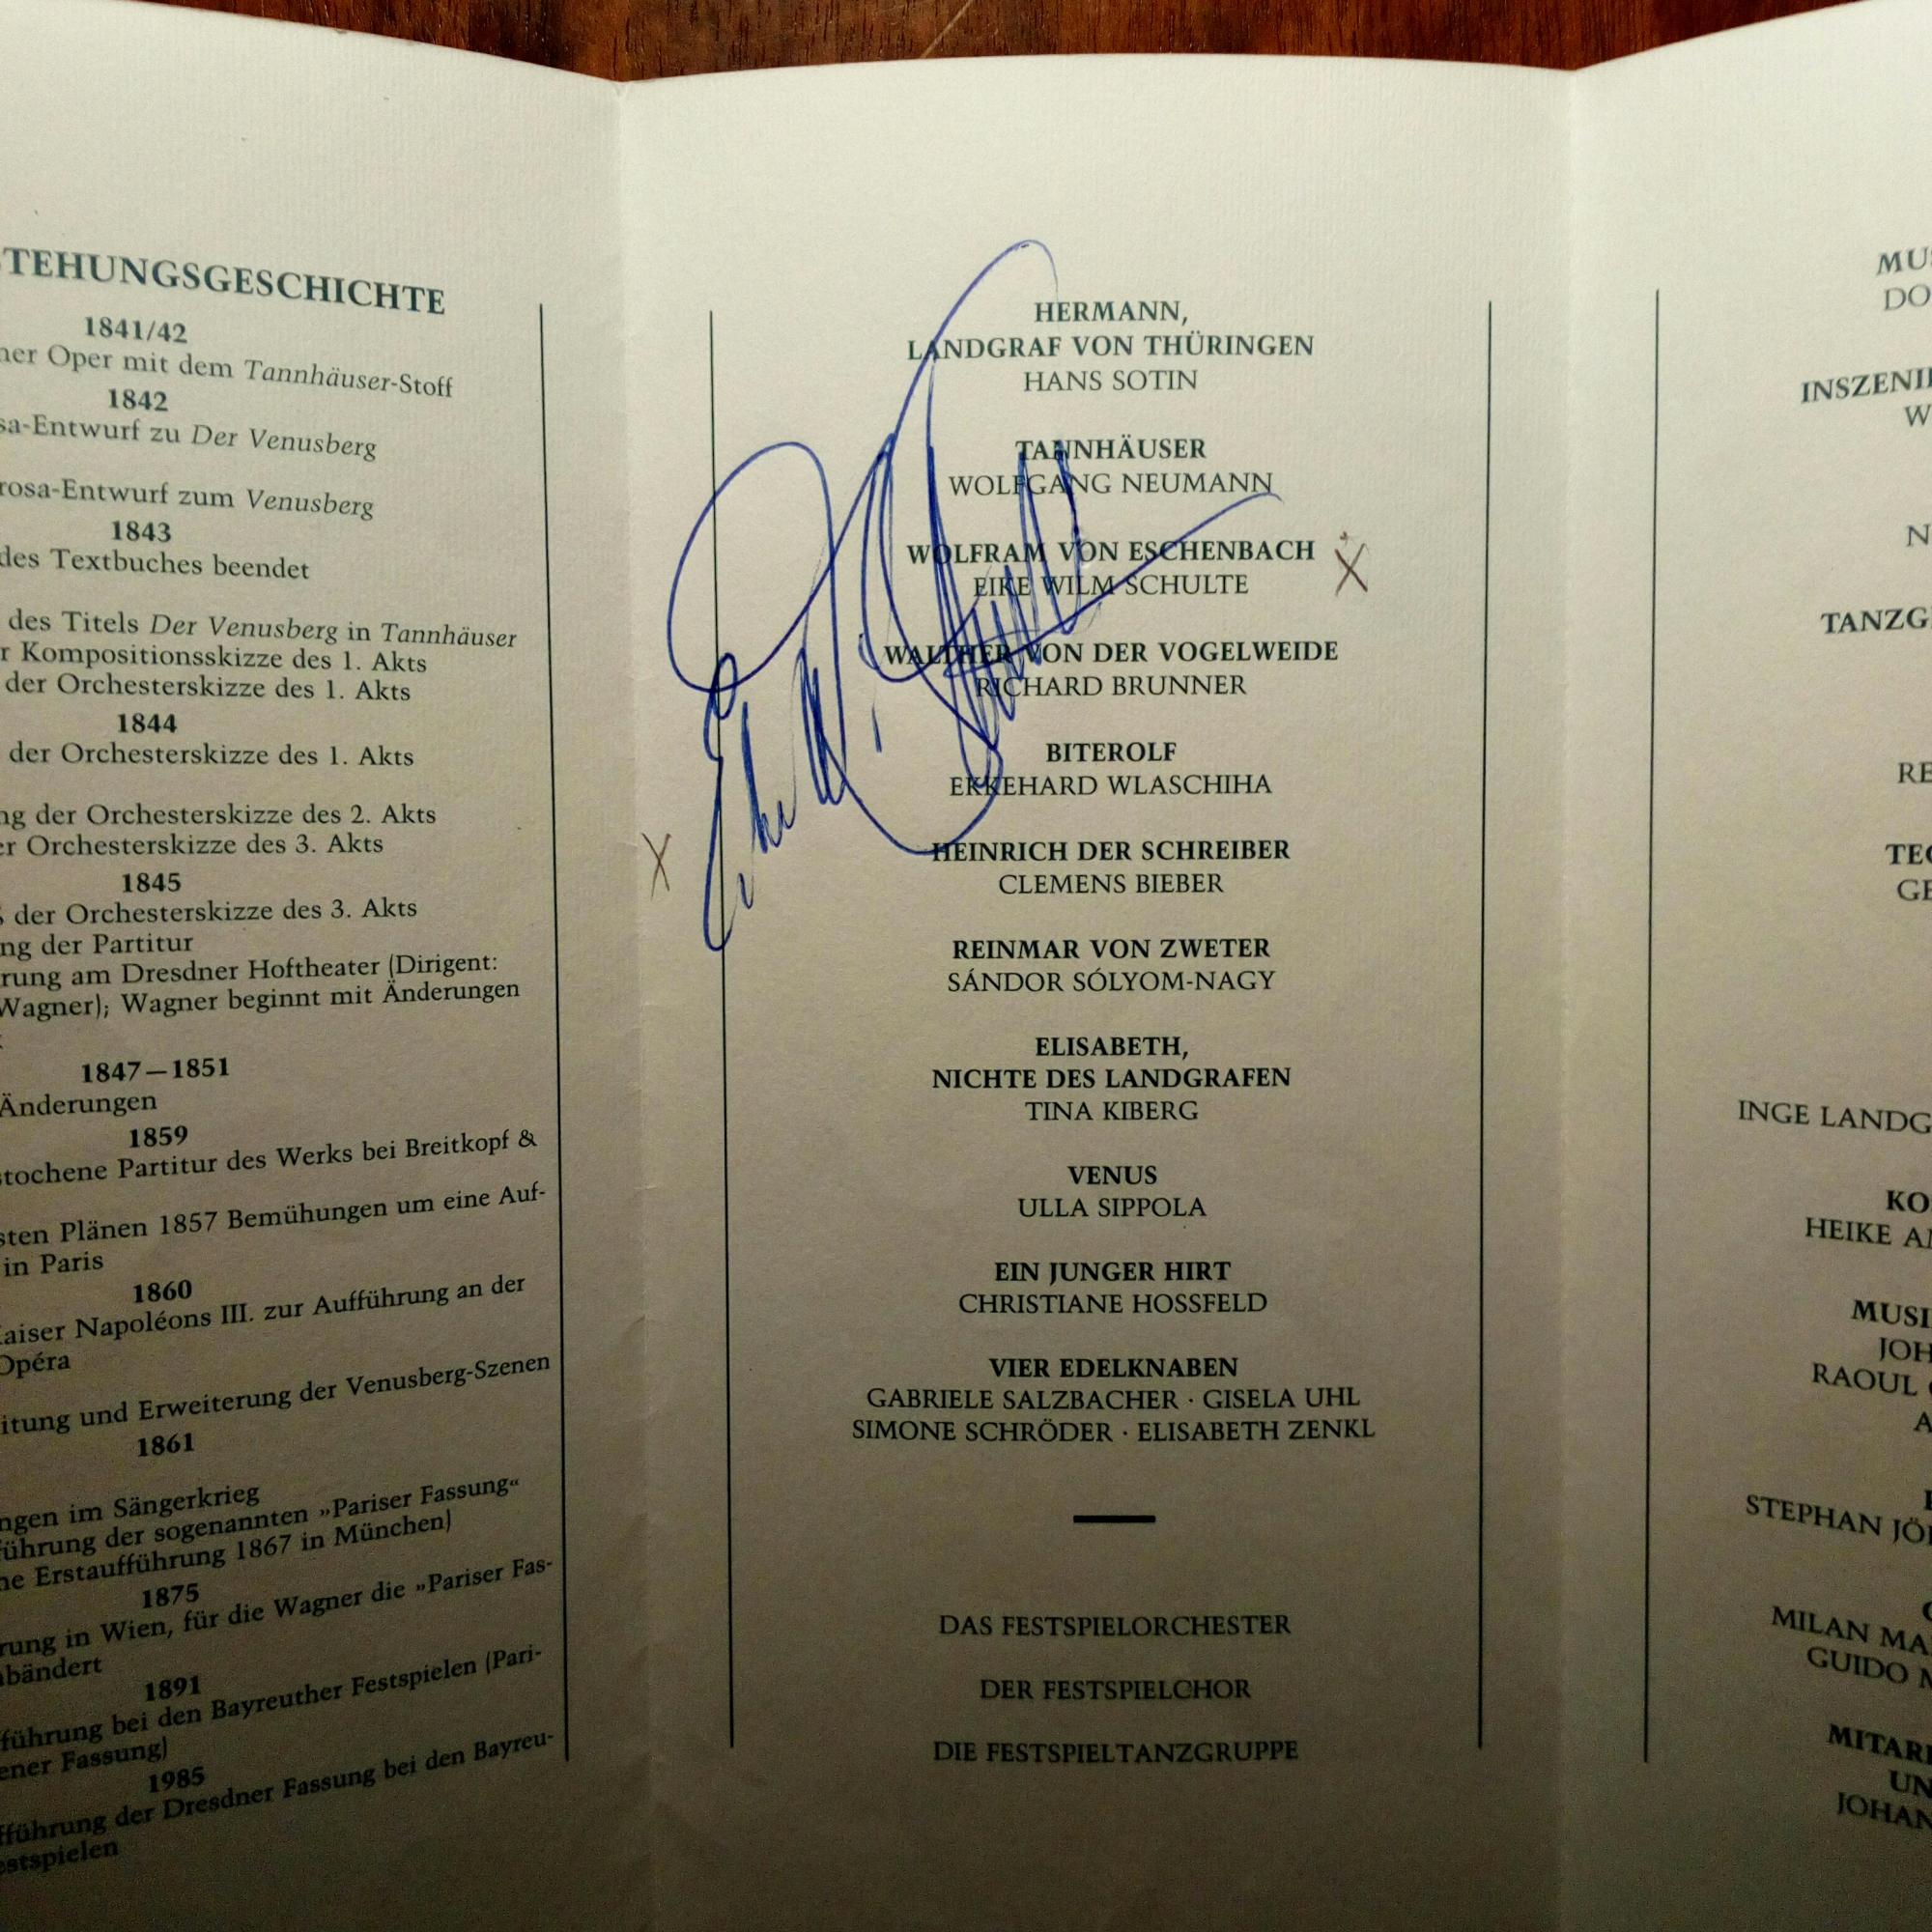 TEHUNGSGESCHICHTE
1841/42
Oper mit dem Tannhäuser-Stoff
1842
-Entwurf zu Der Venusberg
-Entwurf zum Venusberg
1843
des Textbuches beendet
des Titels Der Venusberg in Tannhäuser
Kompositionsskizze des 1. Akts
der Orchesterskizze des 1. Akts
1844
der Orchesterskizze des 1. Akts
der Orchesterskizze des 2. Akts
Orchesterskizze des 3. Akts
1845
der Orchesterskizze des 3. Akts
der Partitur
am Dresdner Hoftheater (Dirigent:
Wagner); Wagner beginnt mit Änderungen
1847—1851
Änderungen
1859
Partitur des Werks bei Breitkopf &
Plänen 1857 Bemühungen um eine Auf-
in Paris
1860
Napoléons III. zur Aufführung an der
Opéra
und Erweiterung der Venusberg-Szenen
1861
im Sängerkrieg
der sogenannten »Pariser Fassung«
Erstaufführung 1867 in München)
1875
in Wien, für die Wagner die »Pariser Fas-
1891
bei den Bayreuther Festspielen (Pari-
Fassung)
1985
der Dresdner Fassung bei den Bayreu-
HERMANN,
LANDGRAF VON THÜRINGEN
HANS SOTIN
TANNHÄUSER
WOLFGANG NEUMANN
WOLFRAM VON ESCHENBACH X
EIKE WILM SCHULTE
WALTHER VON DER VOGELWEIDE
RICHARD BRUNNER
BITEROLF
EKKEHARD WLASCHIHA
X
HEINRICH DER SCHREIBER
CLEMENS BIEBER
REINMAR VON ZWETER
SÁNDOR SÓLYOM-NAGY
ELISABETH,
NICHTE DES LANDGRAFEN
TINA KIBERG
VENUS
ULLA SIPPOLA
EIN JUNGER HIRT
CHRISTIANE HOSSFELD
VIER EDELKNABEN
GABRIELE SALZBACHER · GISELA UHL
SIMONE SCHRÖDER · ELISABETH ZENKL
DAS FESTSPIELORCHESTER
DER FESTSPIELCHOR
DIE FESTSPIELTANZGRUPPE
MU
DO
INSZENI
W
N
TANZG
RE
TE
GE
INGE LANDG
KO
HEIKE
MUSI
JOH
RAOUL
A
STEPHAN JÖ
MILAN MA
GUIDO
MITAR
UN
JOHAN